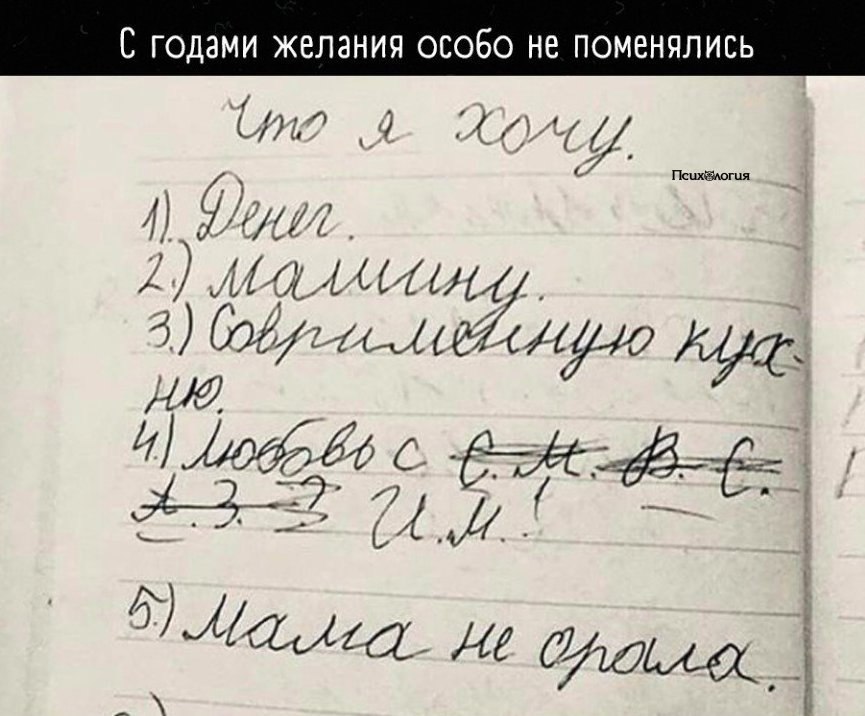 С годами желания особо не поменялись
Что я хочу.
Психология
1). Денег.
2.) Машину.
3.) Совримённую кух-
ню.
4.) Любовь с С. М. В. С.
А. З. ? И. М. !
5.) Мама не орала.